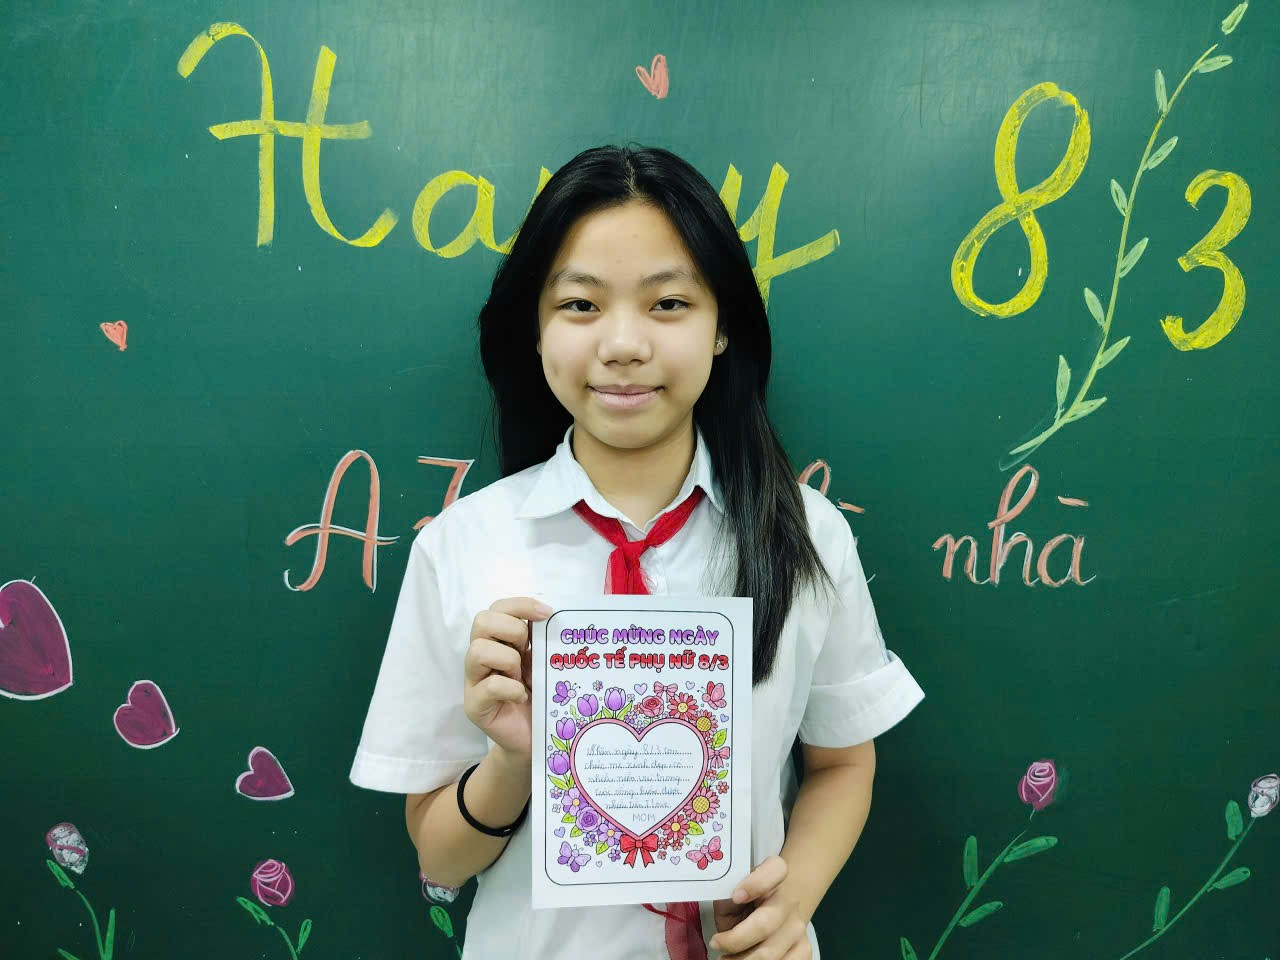 Ha y 8/3
A nhà
CHÚC MỪNG NGÀY
QUỐC TẾ PHỤ NỮ 8/3
Nhân ngày 8/3 con
chúc mẹ xinh đẹp, có
nhiều niềm vui trong
cuộc sống, luôn được
nhiều tiền I love
MOM